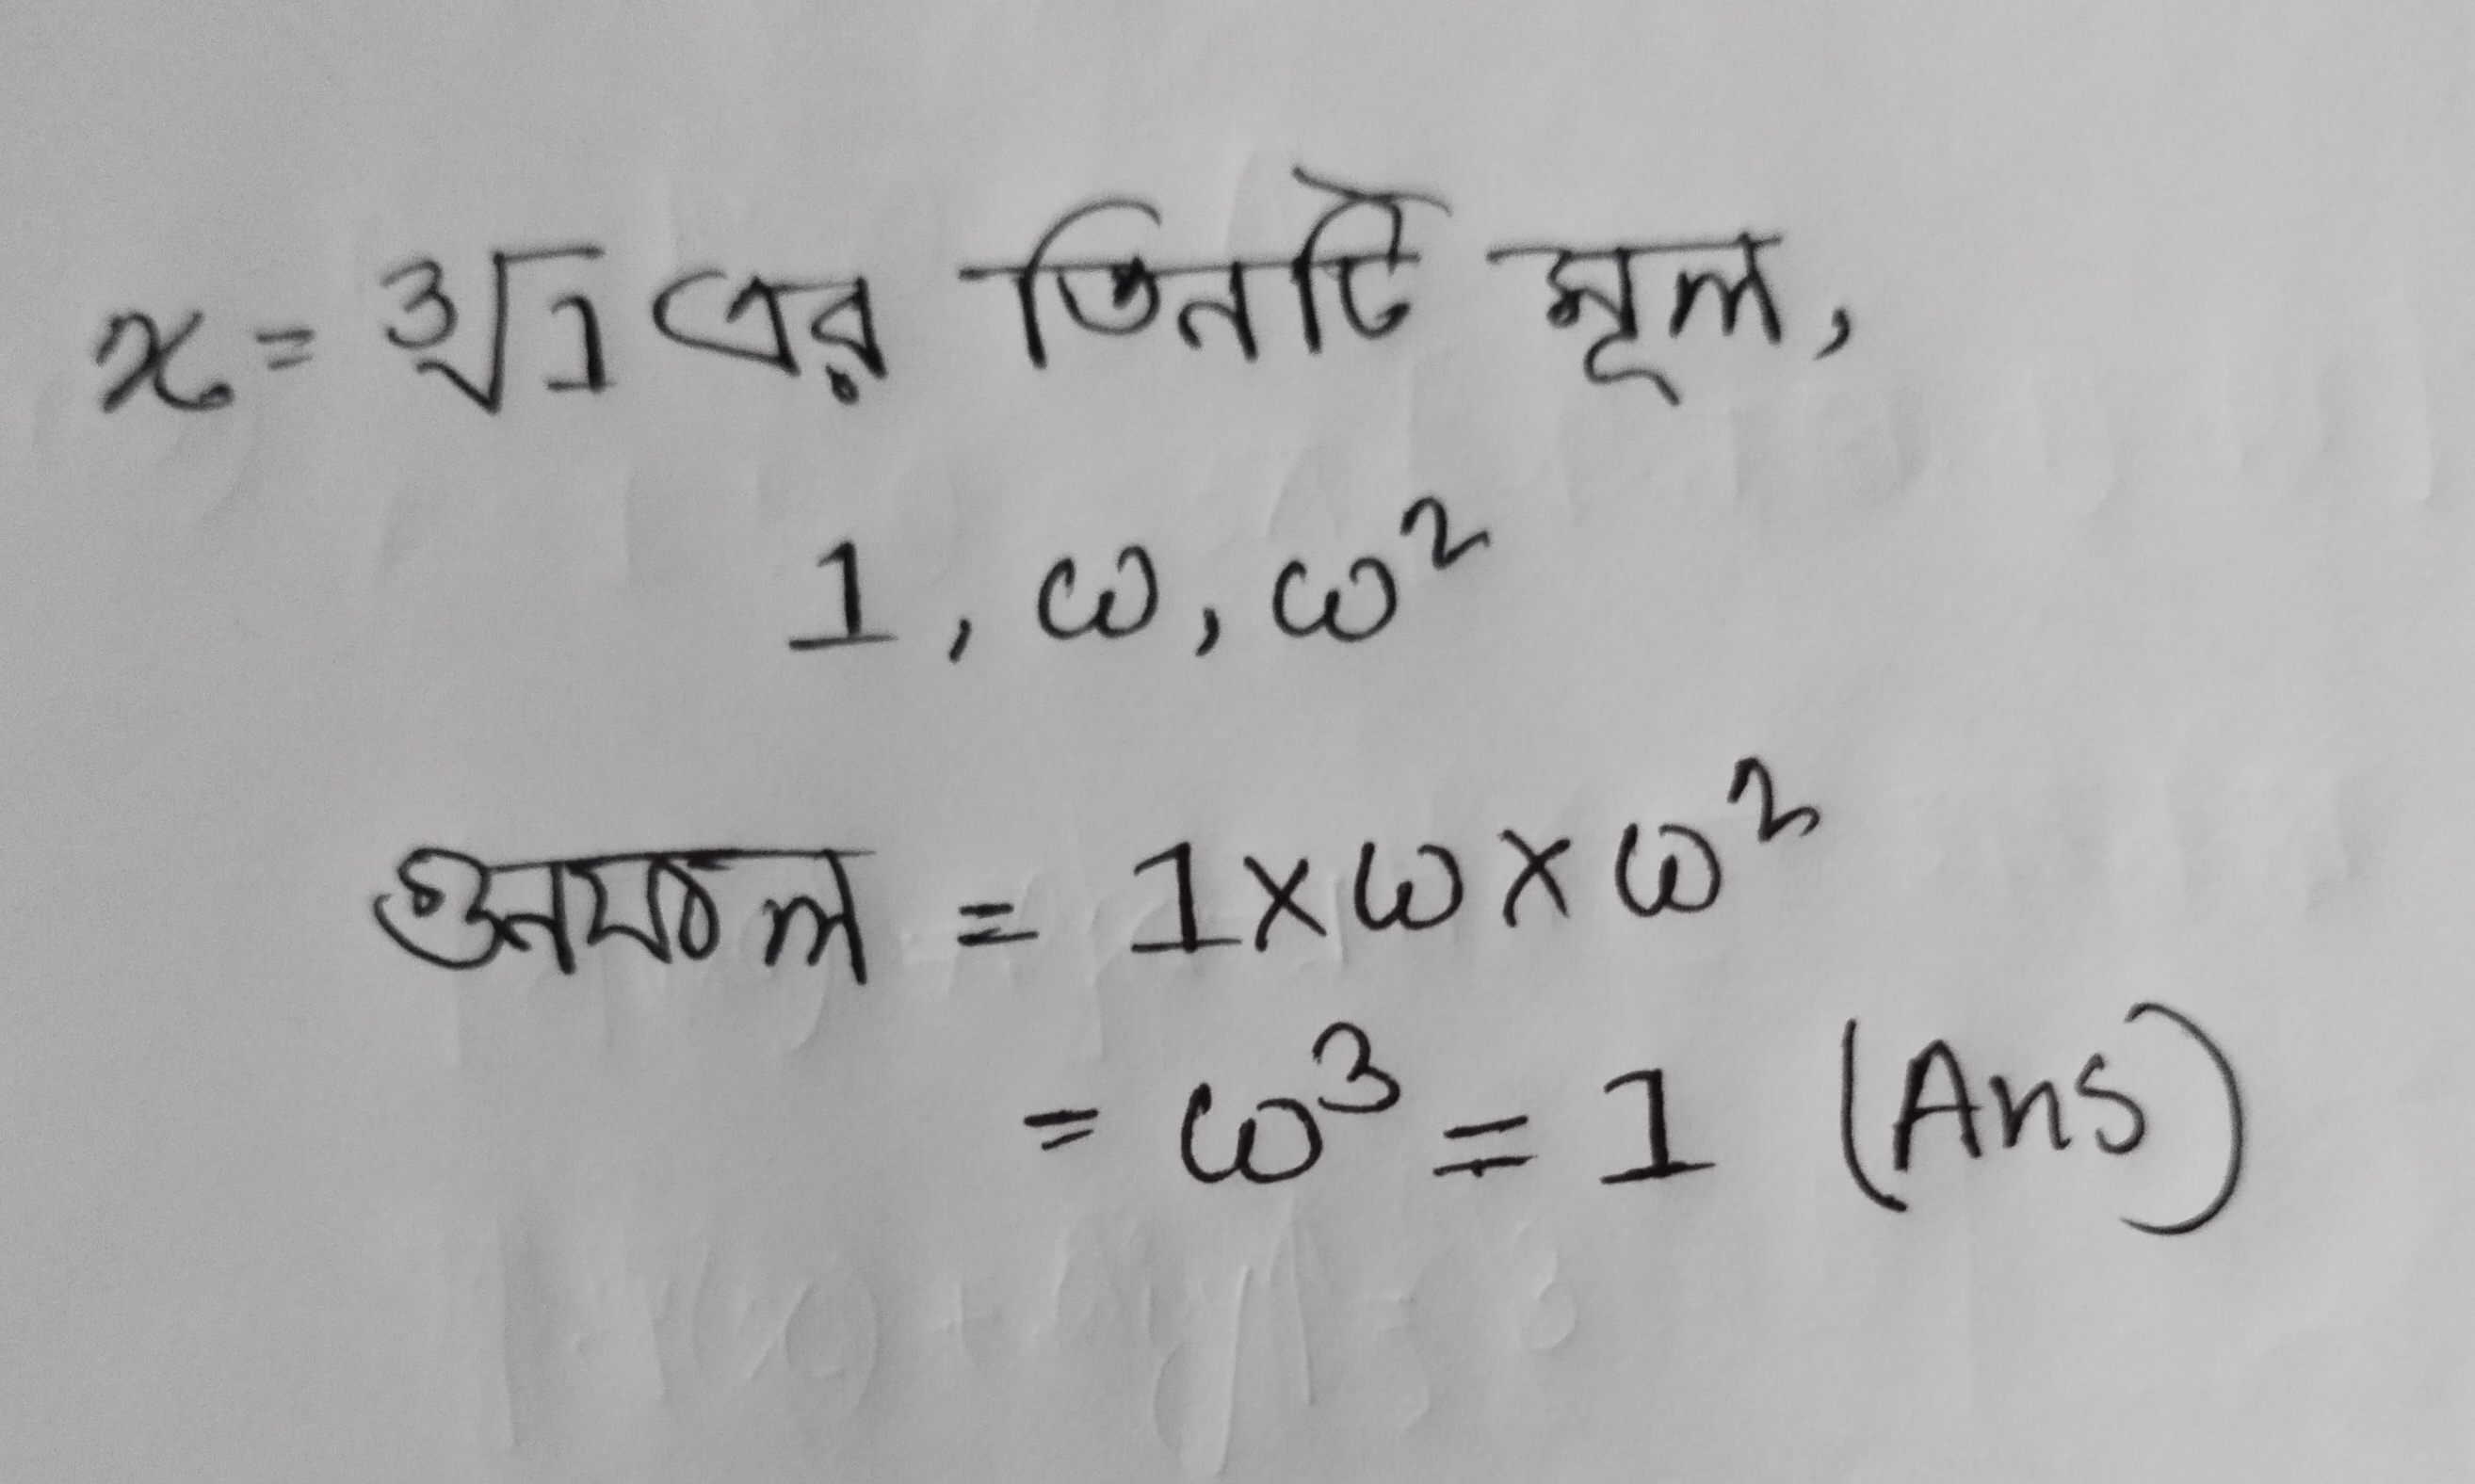 x = ∛1 এর তিনটি মূল,
1, ω, ω²
গুনফল = 1×ω×ω²
= ω³ = 1 (Ans)